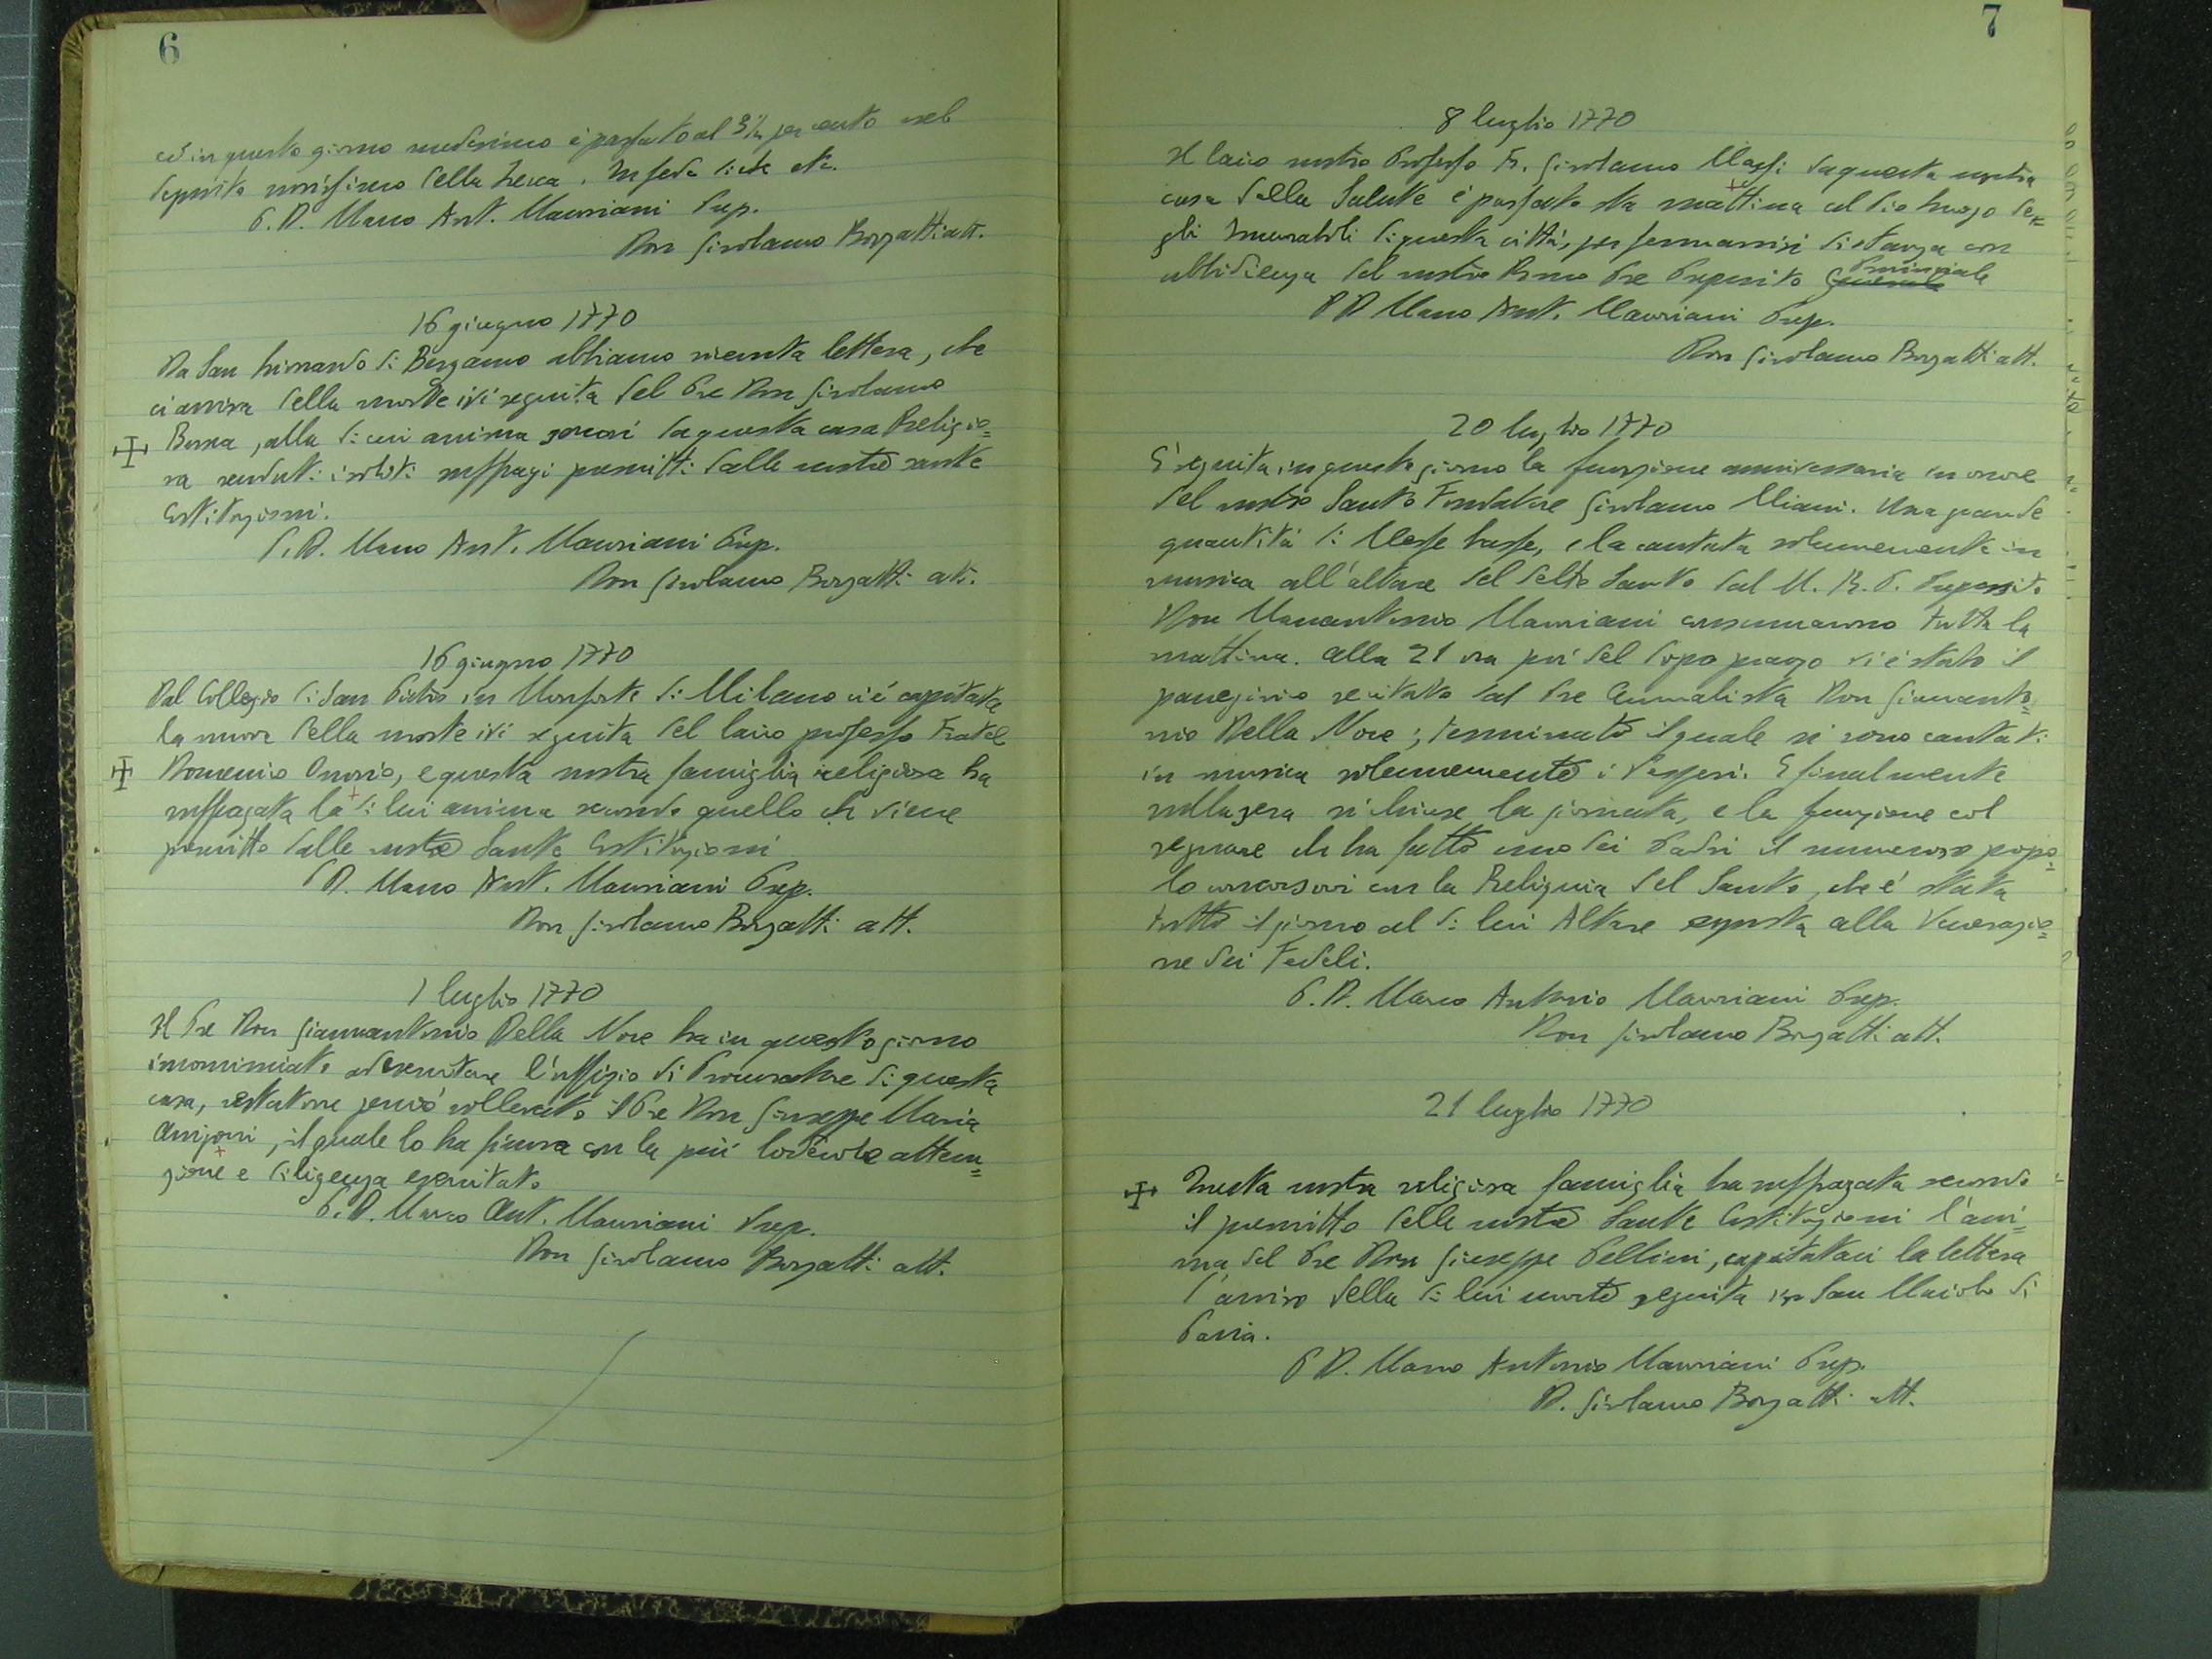 6
ed in questo giorno medesimo è passato al 3½ per cento nel
deposito novissimo della Zecca. In fede di che etc.
P. D. Marco Ant. Mauriani Prep.
Don Girolamo Borzatti att.
16 giugno 1770
Da San Lionardo di Bergamo abbiamo ricevuta lettera, che
ci avvisa della morte ivi seguita del Pre Don Girolamo
✠ Bersa, alla di cui anima sonosi da questa casa Religio=
sa renduti i soliti suffragi prescritti dalle nostre sante
Costituzioni.
P. D. Marco Ant. Mauriani Prep.
Don Girolamo Borzatti att.
16 giugno 1770
Dal Collegio di San Pietro in Monforte di Milano ci è capitata
la nuova della morte ivi seguita del laico professo Fratel
✠ Domenico Onorio, e questa nostra famiglia religiosa ha
suffragata la di lui anima secondo quello ch viene
prescritto dalle nostre Sante Costituzioni
P D. Marco Ant. Mauriani Prep.
Don Girolamo Borzatti att.
1 luglio 1770
Il Pre Don Giannantonio Della Nove ha in questo giorno
incominciato ad esercitare l'uffizio di Procuratore di questa
casa, restatone perciò sollevato il Pre Don Giuseppe Maria
Amigoni, il quale lo ha finora con la più lodevole atten=
zione e diligenza esercitato
P. D. Marco Ant. Mauriani Prep.
Don Girolamo Borzatti att.
7
8 luglio 1770
Il laico nostro Professo Fr. Girolamo Massi da questa nostra
casa della Salute è passato sta mattina al Pio luogo de=
gli Incurabili di questa città, per fermarvisi di stanza con
ubbidienza del nostro Rmo Pre Preposito Generale Provinciale
P D Marco Ant. Mauriani Prep.
Don Girolamo Borzatti att.
20 luglio 1770
È seguita in questo giorno la funzione anniversaria in onore
del nostro Santo Fondatore Girolamo Miani. Una grande
quantità di Messe basse, e la cantata solennemente in
musica all'altare del detto Santo dal M. R. P. Preposito
Don Marcantonio Mauriani consumarono tutta la
mattina. Alla 21 ora poi del dopo pranzo vi è stato il
panegirico recitato dal Pre Annualista Don Giannanto=
nio Della Nove; terminato il quale si sono cantati
in musica solennemente i Vesperi. E finalmente
sulla sera si chiuse la giornata, e la funzione col
segnare ch ha fatto uno dei Padri il numeroso popo=
lo concorsovi con la Reliquia del Santo, che è stata
tutto il giorno al di lui Altare esposta alla Venerazio=
ne dei Fedeli.
P. D. Marco Antonio Mauriani Prep.
Don Girolamo Borzatti att.
21 luglio 1770
✠ Questa nostra religiosa famiglia ha suffragata secondo
il prescritto delle nostre Sante Costituzioni l'ani=
ma del Pre Don Giuseppe Pellini, capitataci la lettera
d'avviso della di lui morte seguita in San Maiolo di
Pavia.
P D. Marco Antonio Mauriani Prep.
D. Girolamo Borzatti att.